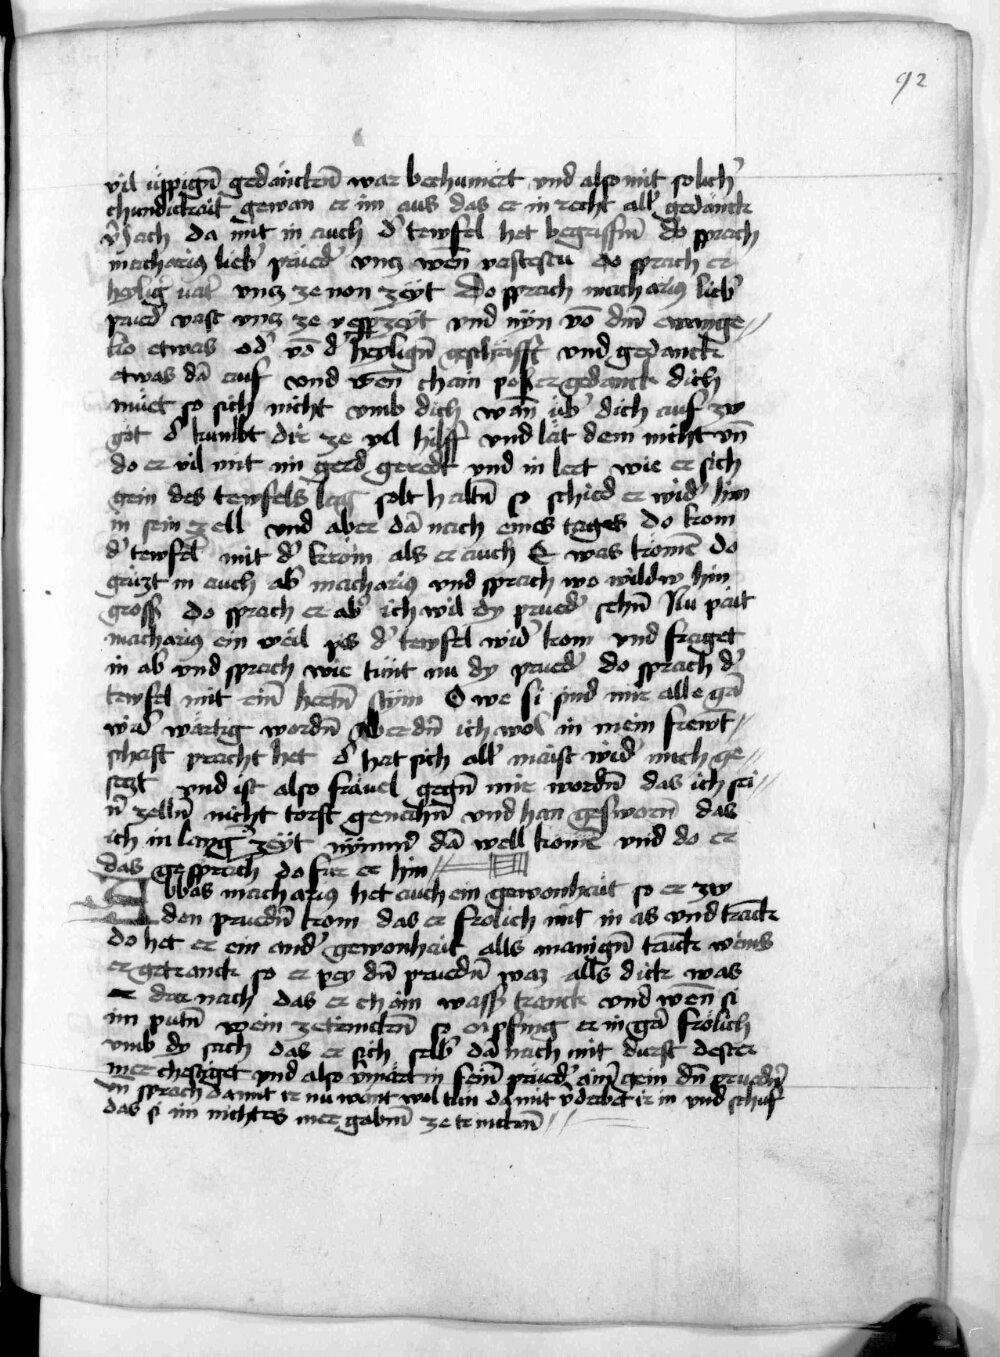 92
vil üppign̄ gedänckn̄ war bechumert vnd also mit solich̕
chundickait gewan er im aus das er in recht all gedänck
v̕iach da mit in auch d̕ tewfel het begriffn̄ do sprach
macharius lieb̕ prued̕ vncz wen̄ vastestu do sprach er
heylig̕ vat̕ vncz ze non zeyt Do sprach macharius lieb̕
prued̕ vast vncz ze vesp̕zeyt vnd nÿn vō dm̄ ewange//
lio etwas od̕ vō d̕ heylign̄ geschrifft vnd gedanck
etwas dā auf vnd wen̄ cham poser gedanck dich
müet so sich nicht vmb dich wān üb̕ dich auf zw
got d̕ kumbt dir ze vil hilff vnd lat dem nicht vn̄
do er vil mit im gerd geredt vnd in lert wie er sich
gein des tewfels lag solt haltn̄ so schied er wid̕ hin
in sein zell vnd aber dā nach eines tages do kom
d̕ tewfel mit d̕ kroin als er auch E was kömē do
grüzt in auch ab̕ macharius vnd sprach wo wildw hin
gross̕ do sprach er ab̕ ich wil dy prued̕ sehn̄ Nu pait
macharius ein weil pis d̕ tewfel wid̕ kom vnd fraget
in ab̕ vnd sprach wie tünt nu dy prued̕ do sprach d̕
tewfel mit ein̄ hertn̄ stÿm O we si sind mir alle gā
wid̕ wärtig wordn̄ Aber dn̄ ich wol in mein frewt//
schaft pracht het d̕ hat sich all̕ maist wid̕ mich ge//
seczt vnd ist also fräuel gegn̄ mir wordn̄ das ich sei//
n̄ zelln̄ nicht torst genahn̄ vnd han gesworn̄ das
ich in lang̕ zeyt nÿmm̄ dā well kömē vnd do er
das gesprach do fur er hin//
Abbas macharius het auch ein gewonhait so er zw
den pruedn̄ kom das er frölich mit in as vnd tranck
do het er ein and̕ gewonhait alls manign̄ trunck weins
er getranck so er pey dn̄ pruedn̄ waz alls dick was
er dar nach das er cham wass̕ tranck vnd wen̄ si
im putn̄ wein ze trinckn̄ so enpfing er in gā frölich
vmb dy sach das er sich selb̕ dā nach mit durst dester
mer chestiget vnd also v̕märt in sein̄ prued̕ ain̕ gein dn̄ pruedn̄
vn̄ sprach damit ir nu want wol tün damit v̕derbet ir in vnd schuf
das si im nichtes mer gabn̄ ze trinckn̄ //